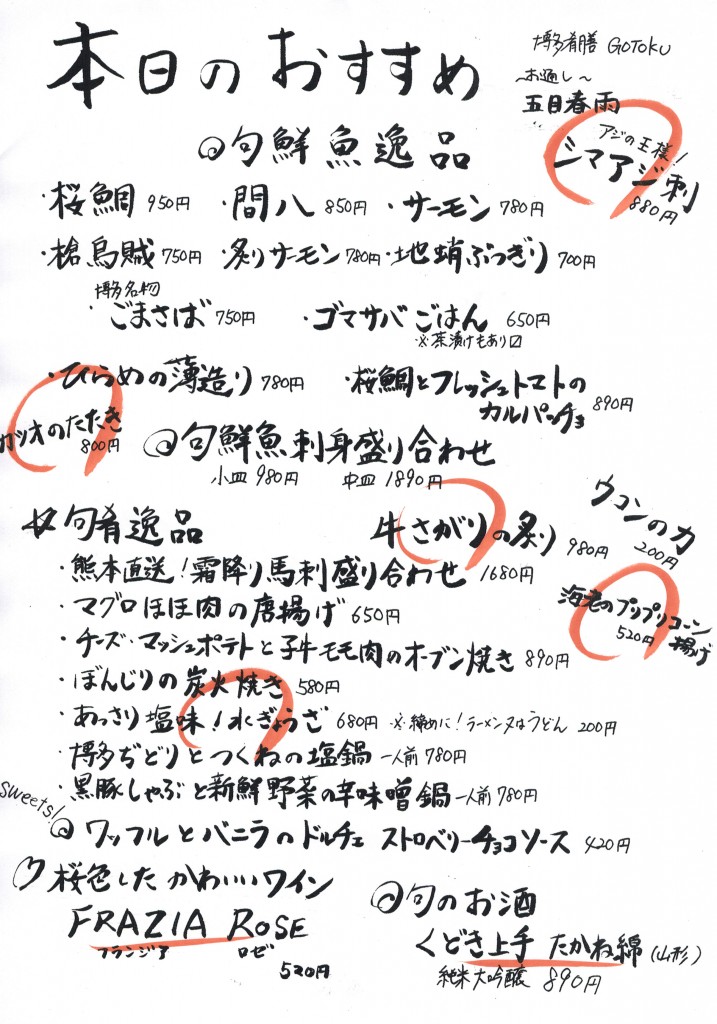 本日のおすすめ
博多肴膳 GOTOKU
～お通し～
五目春雨
◎旬鮮魚逸品
アジの王様!
シマアジ刺
880円
・桜鯛 950円 ・間八 850円 ・サーモン 780円
・槍烏賊 750円 ・炙りサーモン 780円 ・地蛸ぶつぎり 700円
博多名物
・ごまさば 750円 ・ゴマサバごはん 650円
※茶漬けもあり〼
・ひらめの薄造り 780円 ・桜鯛とフレッシュトマトの
カルパッチョ 890円
カツオのたたき
800円
◎旬鮮魚刺身盛り合わせ
小皿 980円 中皿 1890円
☆旬肴逸品
牛さがりの炙り 980円
ウコンの力
200円
・熊本直送!霜降り馬刺盛り合わせ 1680円
・マグロほほ肉の唐揚げ 650円
海老のプリプリコーン
揚げ
520円
・チーズ・マッシュポテトと子牛モモ肉のオーブン焼き 890円
・ぼんじりの炭火焼き 580円
・あっさり塩味!水ぎょうざ 680円 ※締めに!ラーメン又はうどん 200円
・博多ぢどりとつくねの塩鍋 一人前 780円
・黒豚しゃぶと新鮮野菜の辛味噌鍋 一人前 780円
sweets!
◎ワッフルとバニラのドルチェ ストロベリーチョコソース 420円
桜色したかわいいワイン
FRAZIA ROSE
フランジア ロゼ
520円
◎旬のお酒
くどき上手 たかね錦 (山形)
純米大吟醸 890円